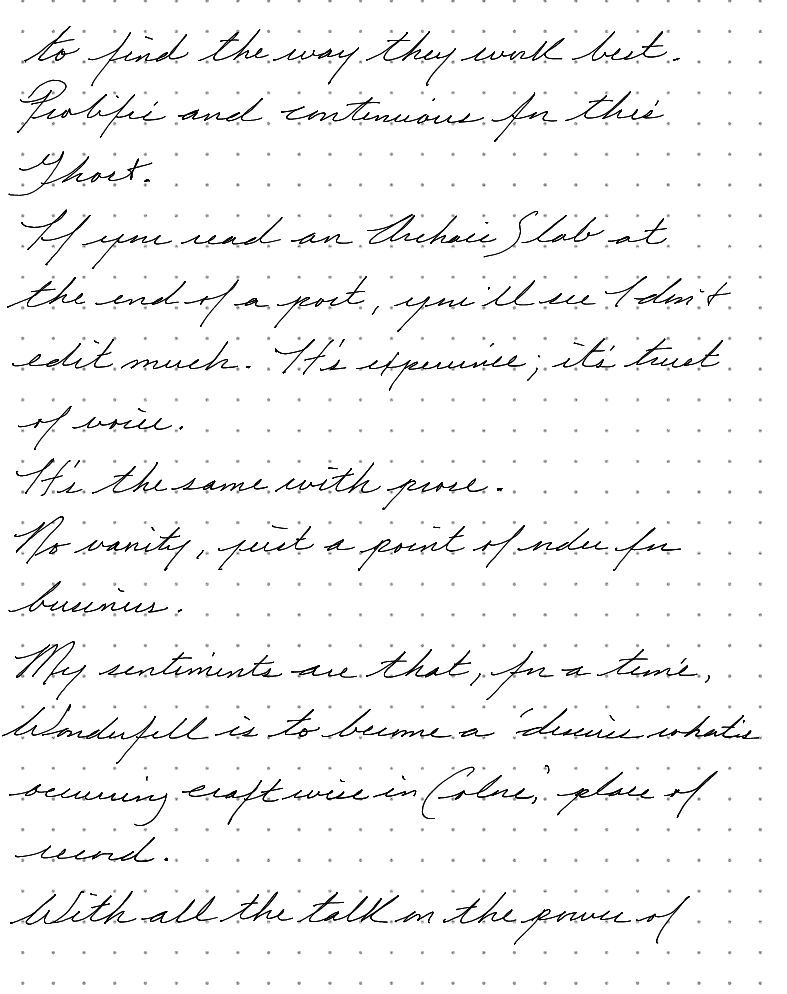 to find the way they work best.
Prolific and continuous for this
Ghost.
If you read an Archaic Slab at
the end of a post, you'll see I don't
edit much. It's experience; it's trust
of voice.
It's the same with prose.
No vanity, just a point of order for
business.
My sentiments are that, for a time,
Wonderfell is to become a 'desires what's
occurring craft wise in Colne,' place of
record.
With all the talk on the power of